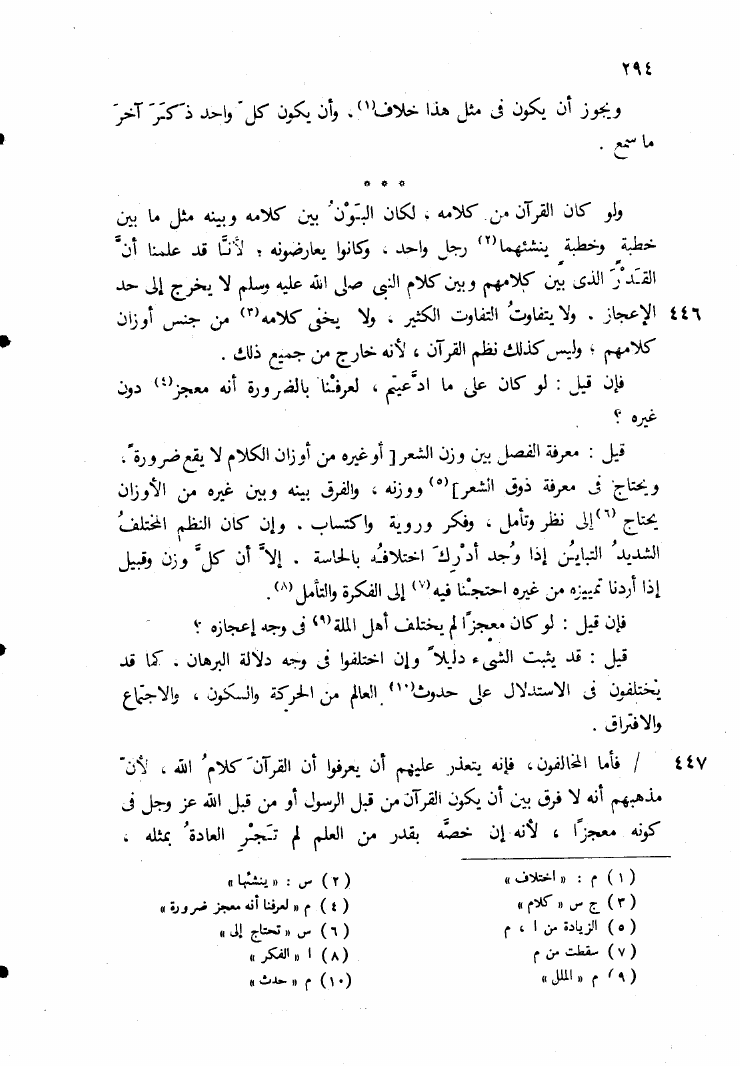 ٢٩٤
ويجوز أن يكون فى مثل هذا خلاف(١) ، وأن يكون كل واحد ذَكَرَ آخرَ
ما سمع .
* * *
ولو كان القرآن من كلامه ، لكان البَوْنُ بين كلامه وبينه مثل ما بين
خطبةٍ وخطبةٍ ينشئهما(٢) رجل واحد ، وكانوا يعارضونه ؛ لأنَّا قد علمنا أنَّ
القَدْرَ الذى بين كلامهم وبين كلام النبى صلى الله عليه وسلم لا يخرج إلى حد
٤٤٦ الإعجاز . ولا يتفاوتُ التفاوت الكثير ، ولا يخفى كلامه(٣) من جنس أوزان
كلامهم ؛ وليس كذلك نظم القرآن ، لأنه خارج من جميع ذلك .
فإن قيل : لو كان على ما ادعيتم ، لعرفْنا بالضرورة أنه معجز(٤) دون
غيره ؟
قيل : معرفة الفصل بين وزن الشعر [ أو غيره من أوزان الكلام لا يقع ضرورةً ،
ويحتاج فى معرفة ذوق الشعر ](٥) ووزنه ، والفرق بينه وبين غيره من الأوزان
يحتاج (٦) إلى نظر وتأمل ، وفكر وروية واكتساب . وإن كان النظم المختلفُ
الشديدُ التباينُ إذا وُجد أدْركَ اختلافُه بالحاسة . إلاَّ أن كلَّ وزن وقبيل
إذا أردنا تمييزه من غيره احتجْنا فيه(٧) إلى الفكرة والتأمل(٨) .
فإن قيل : لو كان معجزًا لم يختلف أهل الملة(٩) فى وجه إعجازه ؟
قيل : قد يثبت الشىء دليلاً وإن اختلفوا فى وجه دلالة البرهان . كما قد
يختلفون فى الاستدلال على حدوث(١٠) العالم من الحركة والسكون ، والاجتماع
والافتراق .
٤٤٧ / فأما المخالفون ، فإنه يتعذر عليهم أن يعرفوا أن القرآن كلامُ الله ، لأن
مذهبهم أنه لا فرق بين أن يكون القرآن من قبل الرسول أو من قبل الله عز وجل فى
كونه معجزًا ، لأنه إن خصَّه بقدر من العلم لم تَجْرِ العادةُ بمثله ،
(١) م : « اختلاف » (٢) س : « ينشئها »
(٣) ج س « كلام » (٤) م « لعرفنا أنه معجز ضرورة »
(٥) الزيادة من ا ، م (٦) س « تحتاج إلى »
(٧) سقطت من م (٨) ا « الفكر »
(٩) م « الملل » (١٠) م « حدث »